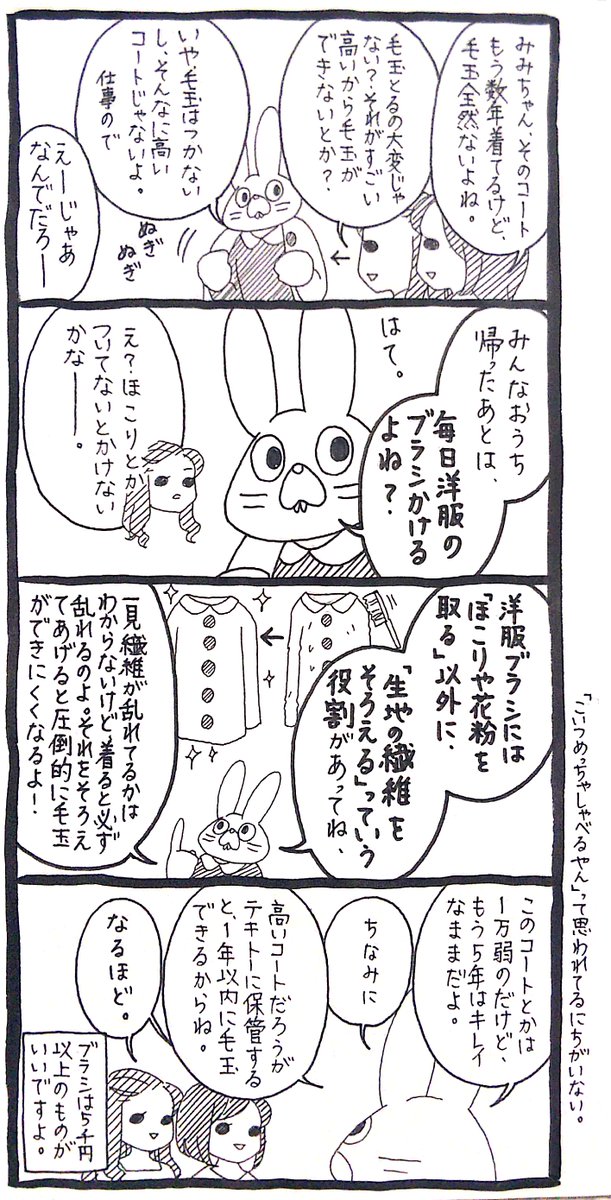 みみちゃん、そのコート
もう数年着てるけど、
毛玉全然ないよね。
毛玉とるの大変じゃ
ない？それがすごい
高いから毛玉が
できないとか？
いや、毛玉はつかない
し、そんなに高い
コートじゃないよ。
仕事ので
ぬぎ
ぬぎ
えーじゃあ
なんでだろー
みんなおうち
帰ったあとは、
毎日洋服の
ブラシかける
よね？
はて。
え？ほこりとか
ついてないとかけない
かなー。
洋服ブラシには
「ほこりや花粉を
取る」以外に、
「生地の繊維を
そろえる」っていう
役割があってね、
一見繊維が乱れてるかは
わからないけど、着ると必ず
乱れるのよ。それをそろえ
てあげると圧倒的に毛玉
ができにくくなるよ！
このコートとかは
1万弱のだけど、
もう5年はキレイ
なままだよ。
ちなみに
高いコートだろうが
テキトーに保管する
と、1年以内に毛玉
できるからね。
なるほど。
ブラシは5千円
以上のものが
いいですよ。
「こいつめっちゃしゃべるやん」って思われてるにちがいない。